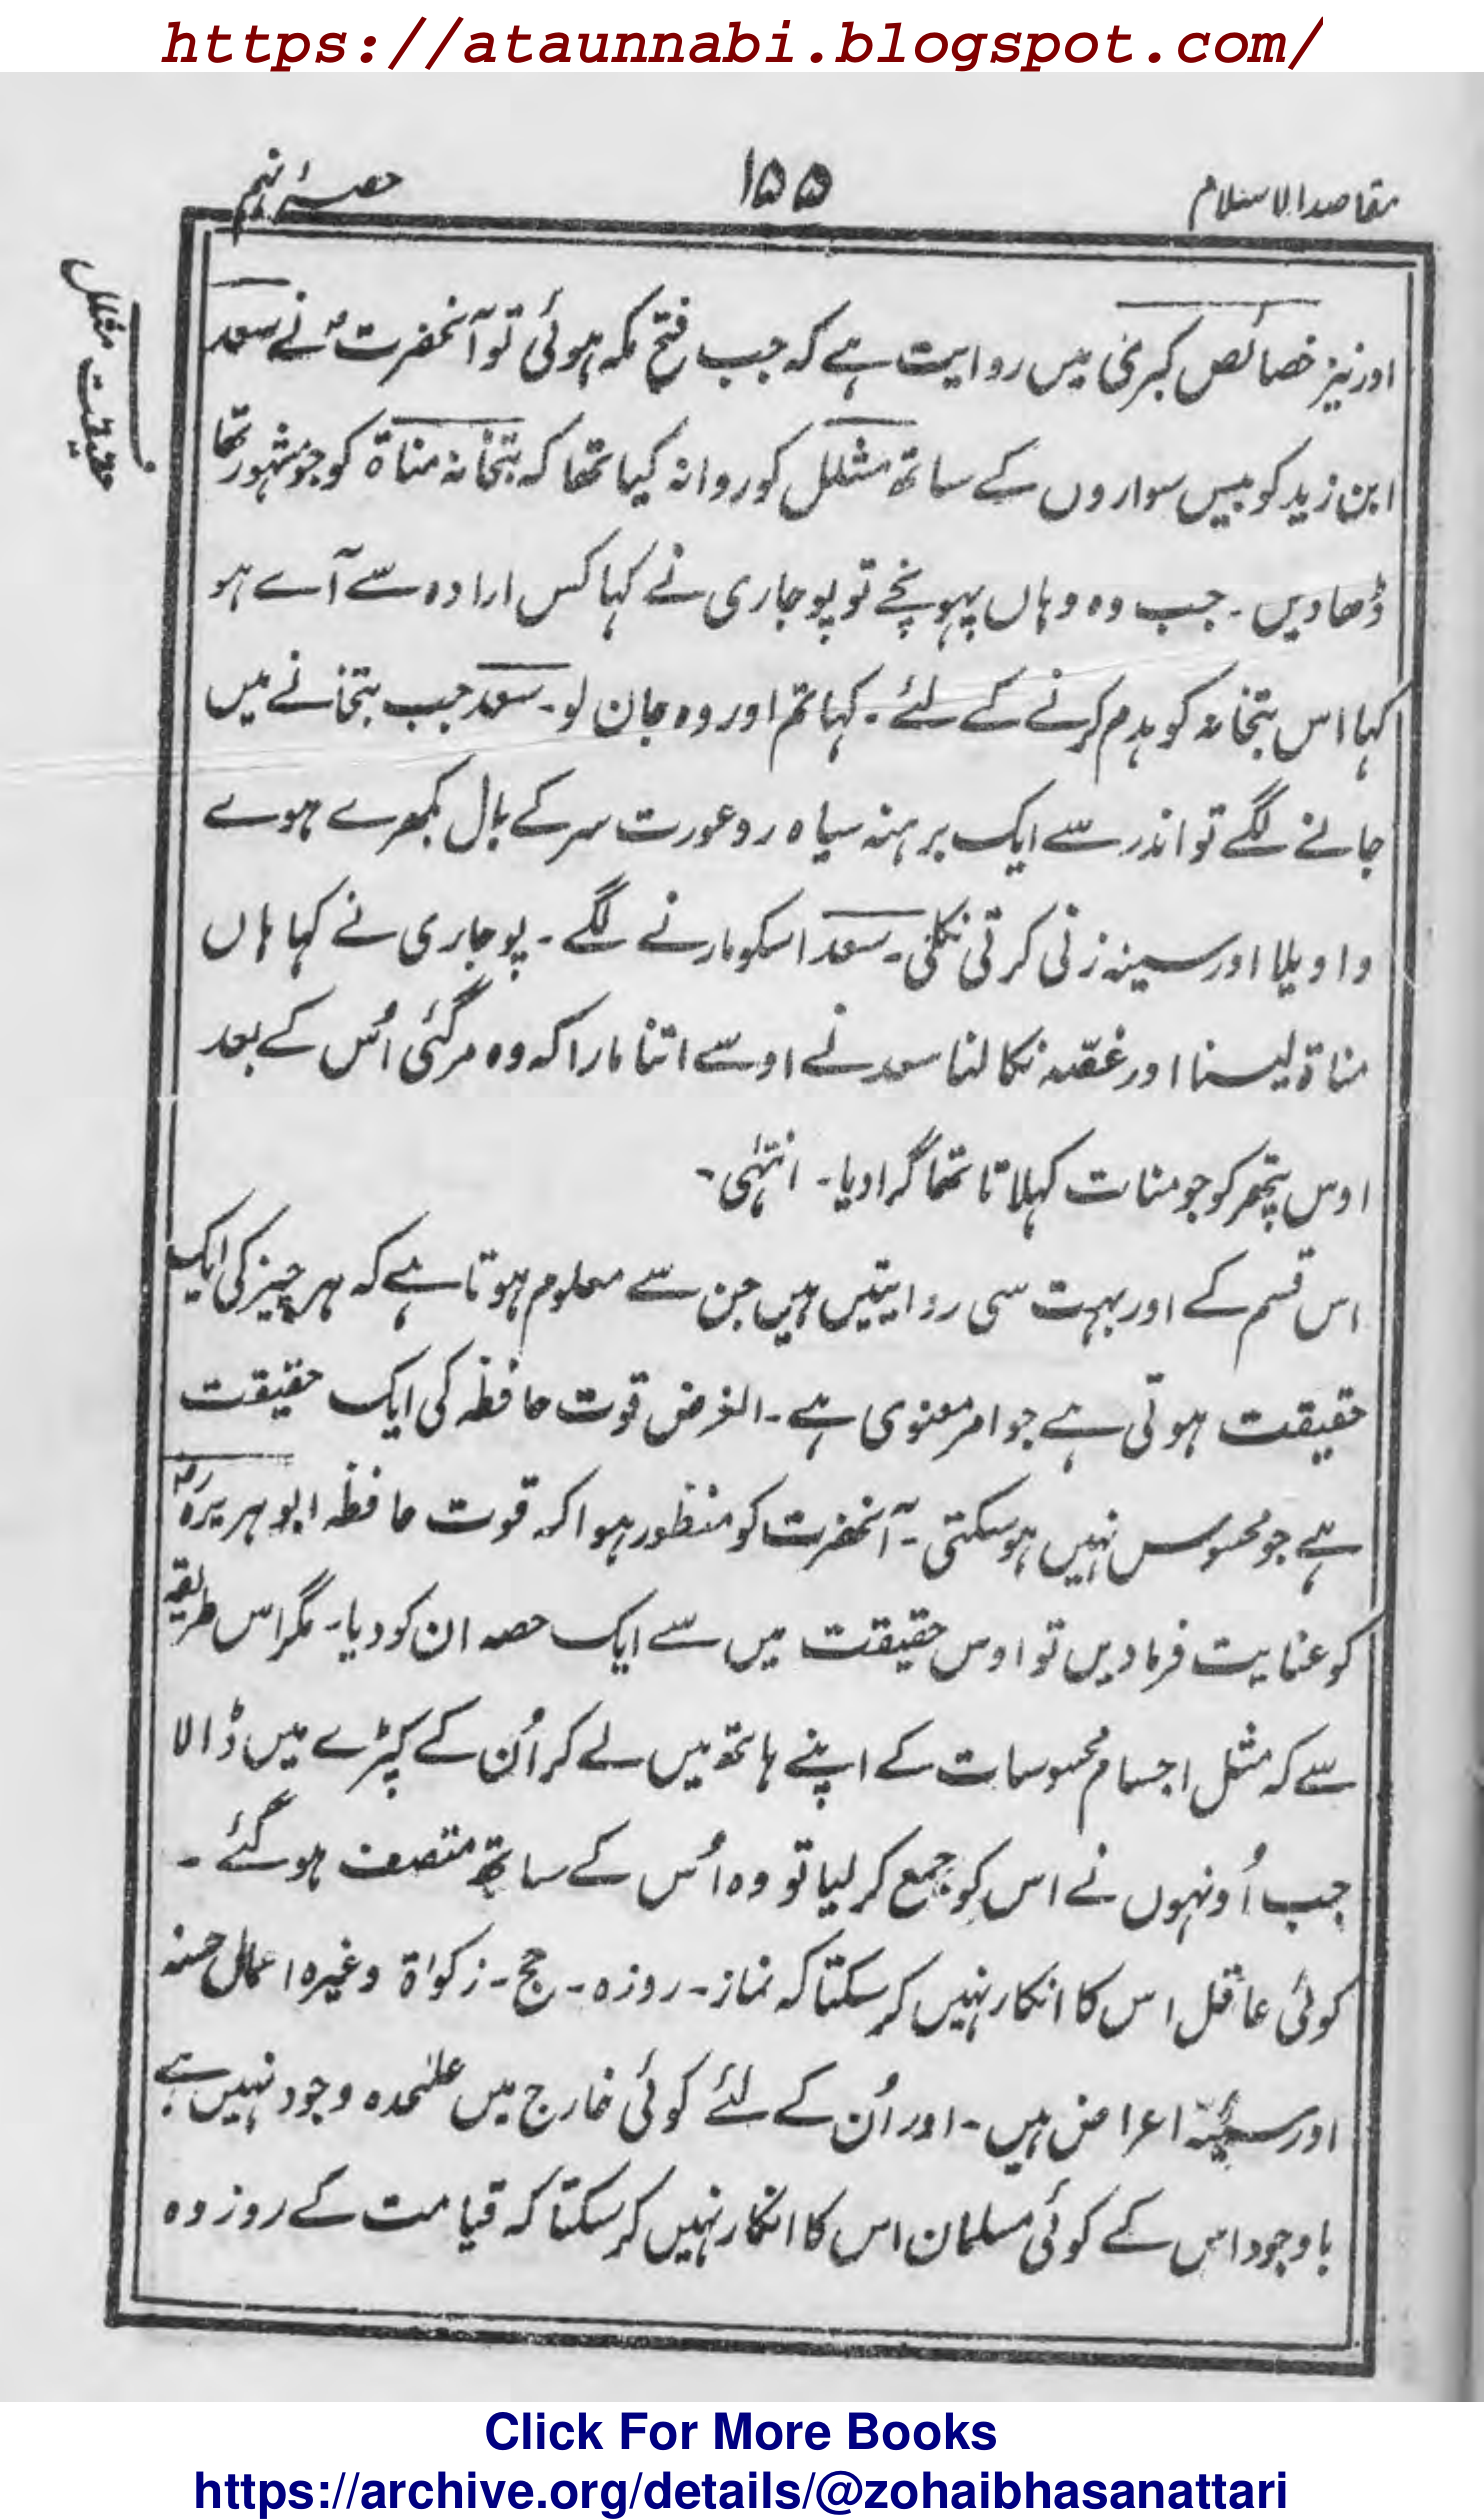 https://ataunnabi.blogspot.com/
مقاصد الاسلام ۱۵۵ حصۂ نہم
اور نیز خصائص کبریٰ میں روایت ہے کہ جب فتح مکہ ہوئی تو آنحضرتؐ نے سعد
حقیقت مشلل
ابن زید کو بیس سواروں کے ساتھ مشلل کو روانہ کیا تھا کہ بتخانہ مناۃ کو جو مشہور تھا
ڈھادیں۔ جب وہ وہاں پہونچے تو پوجاری نے کہا کس ارادہ سے آے ہو
کہا اس بتخانہ کو ہدم کرنے کے لئے۔ کہا تم اور وہ جان لو۔ سعد جب بتخانے میں
جانے لگے تو اندر سے ایک برہنہ سیاہ رو عورت سر کے بال بکھرے ہوے
واویلا اور سینہ زنی کرتی نکلی۔ سعد اسکو مارنے لگے۔ پوجاری نے کہا ہاں
مناۃ لینا اور غصّہ نکالنا سعد نے اوسے اتنا مارا کہ وہ مرگئی اُس کے بعد
اوس پتھر کو جو منات کہلاتا تھا گرادیا۔ انتہٰی۔
اس قسم کے اور بہت سی روایتیں ہیں جن سے معلوم ہوتا ہے کہ ہر چیز کی ایک
حقیقت ہوتی ہے جو امر معنوی ہے۔ الغرض قوت حافظہ کی ایک حقیقت
ہے جو محسوس نہیں ہوسکتی۔ آنحضرت کو منظور ہوا کہ قوت حافظہ ابوہریرہؓ
کو عنایت فرمادیں تو اوس حقیقت میں سے ایک حصہ ان کو دیا۔ مگر اس طریقہ
سے کہ مثل اجسام محسوسات کے اپنے ہاتھ میں لے کر اُن کے کپڑے میں ڈالا
جب اُونہوں نے اس کو جمع کرلیا تو وہ اُس کے ساتھ متصف ہوگئے۔
کوئی عاقل اس کا انکار نہیں کرسکتا کہ نماز۔ روزہ۔ حج۔ زکوٰۃ وغیرہ اعمال حسنہ
اور سیّئہ اعراض ہیں۔ اور اُن کے لئے کوئی خارج میں علٰحدہ وجود نہیں ہے
باوجود اس کے کوئی مسلمان اس کا انکار نہیں کرسکتا کہ قیامت کے روز وہ
Click For More Books
https://archive.org/details/@zohaibhasanattari